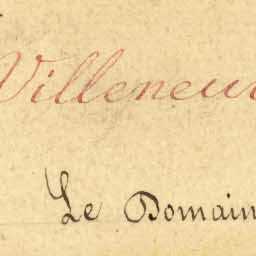 Villeneu
Le Domain